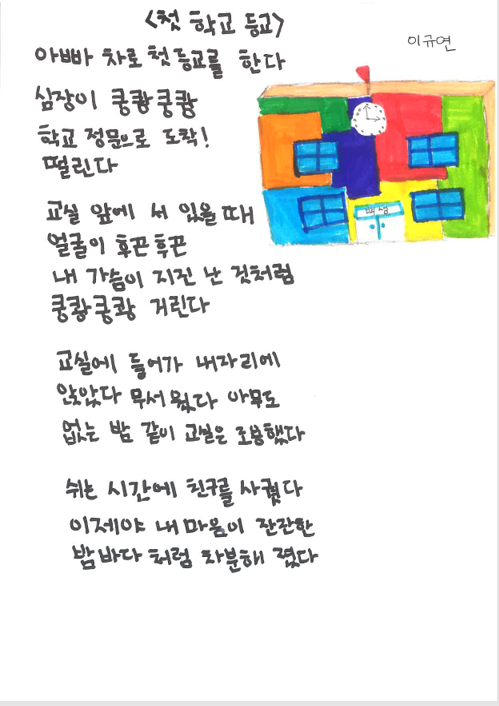 <첫 학교 등교>
이규연
아빠 차로 첫 등교를 한다
심장이 쿵쾅쿵쾅
학교 정문으로 도착!
떨린다
교실 앞에 서 있을 때
얼굴이 후끈후끈
내 가슴이 지진 난 것처럼
쿵쾅쿵쾅 거린다
교실에 들어가 내자리에
앉았다 무서웠다 아무도
없는 밤 같이 교실은 조용했다
쉬는 시간에 친구를 사귔다
이제야 내 마음이 잔잔한
밤바다 처럼 차분해 졌다